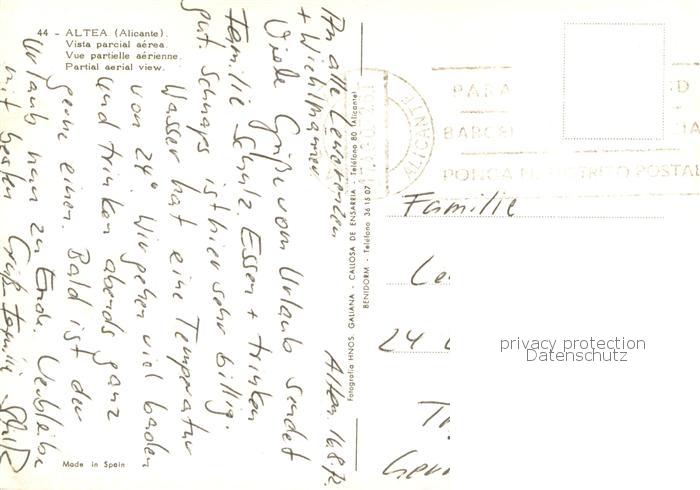 44 - ALTEA (Alicante).
Vista parcial aérea.
Vue partielle aérienne.
Partial aerial view.
Altea, 16.8.72
An alle
+
Viele Grüße vom Urlaub sendet
Familie Schulz. Essen + trinken
gut. Schnaps ist hier sehr billig.
Wasser hat eine Temperatur
von 24°. Wir gehen viel baden
und trinken abends ganz
gerne einen. Bald ist der
Urlaub nun zu Ende. Verbleibe
mit besten Gruß Familie Schulz
Made in Spain
Fotografía HNOS. GALIANA - CALLOSA DE ENSARRIA - Teléfono 80 (Alicante)
BENIDORM - Teléfono 36 15 07
ALICANTE
PARA
BARCEL
PONGA EL DISTRITO POSTAL
Familie
Le
24
privacy protection
Datenschutz